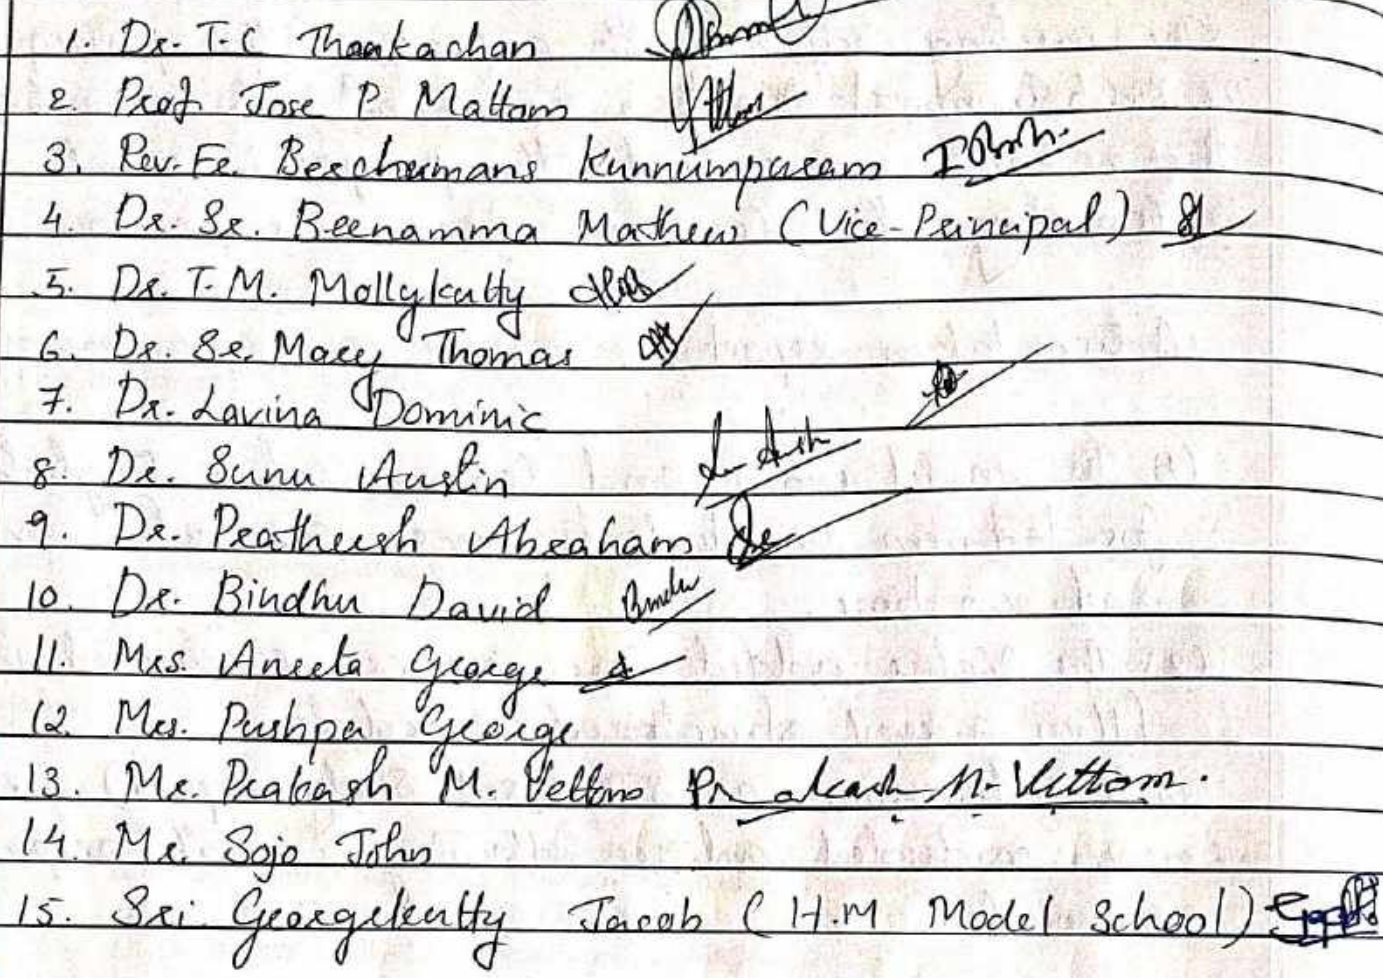 1. Dr. T.C Thankachan
2. Prof Jose P. Mattam
3. Rev. Fr. Berchumans Kunnumpuram
4. Dr. Sr. Beenamma Mathew (Vice-Principal)
5. Dr. T.M. Mollykutty
6. Dr. Sr. Mary Thomas
7. Dr. Lavina Dominic
8. Dr. Sunu Austin
9. Dr. Pratheesh Abraham
10. Dr. Bindhu David Bindu
11. Mrs. Aneeta George
12. Mrs. Pushpa George
13. Mr. Prakash M. Vettom Prakash M. Vettom.
14. Mr. Sojo John
15. Sri Georgekutty Jacob (H.M Model School)